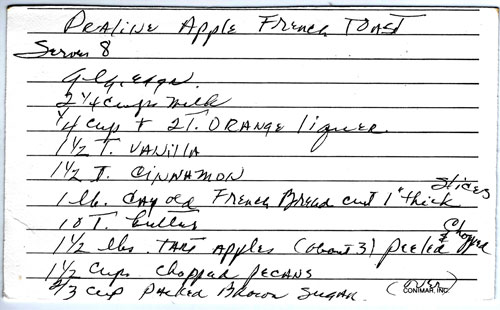 Praline Apple French Toast
Serves 8
9 lg. eggs.
2 1/4 cups milk
1/4 cup + 2 T. ORANGE liquer.
1 1/2 T. VANILLA
1 1/2 T. CINNAMON
1 lb. day old French Bread cut 1" thick slices
10 T. butter
1 1/2 lbs. TART Apples (about 3) peeled & chopped
1 1/2 cups chopped pecans
2/3 cup packed Brown Sugar.
(over)
CONIMAR, INC.